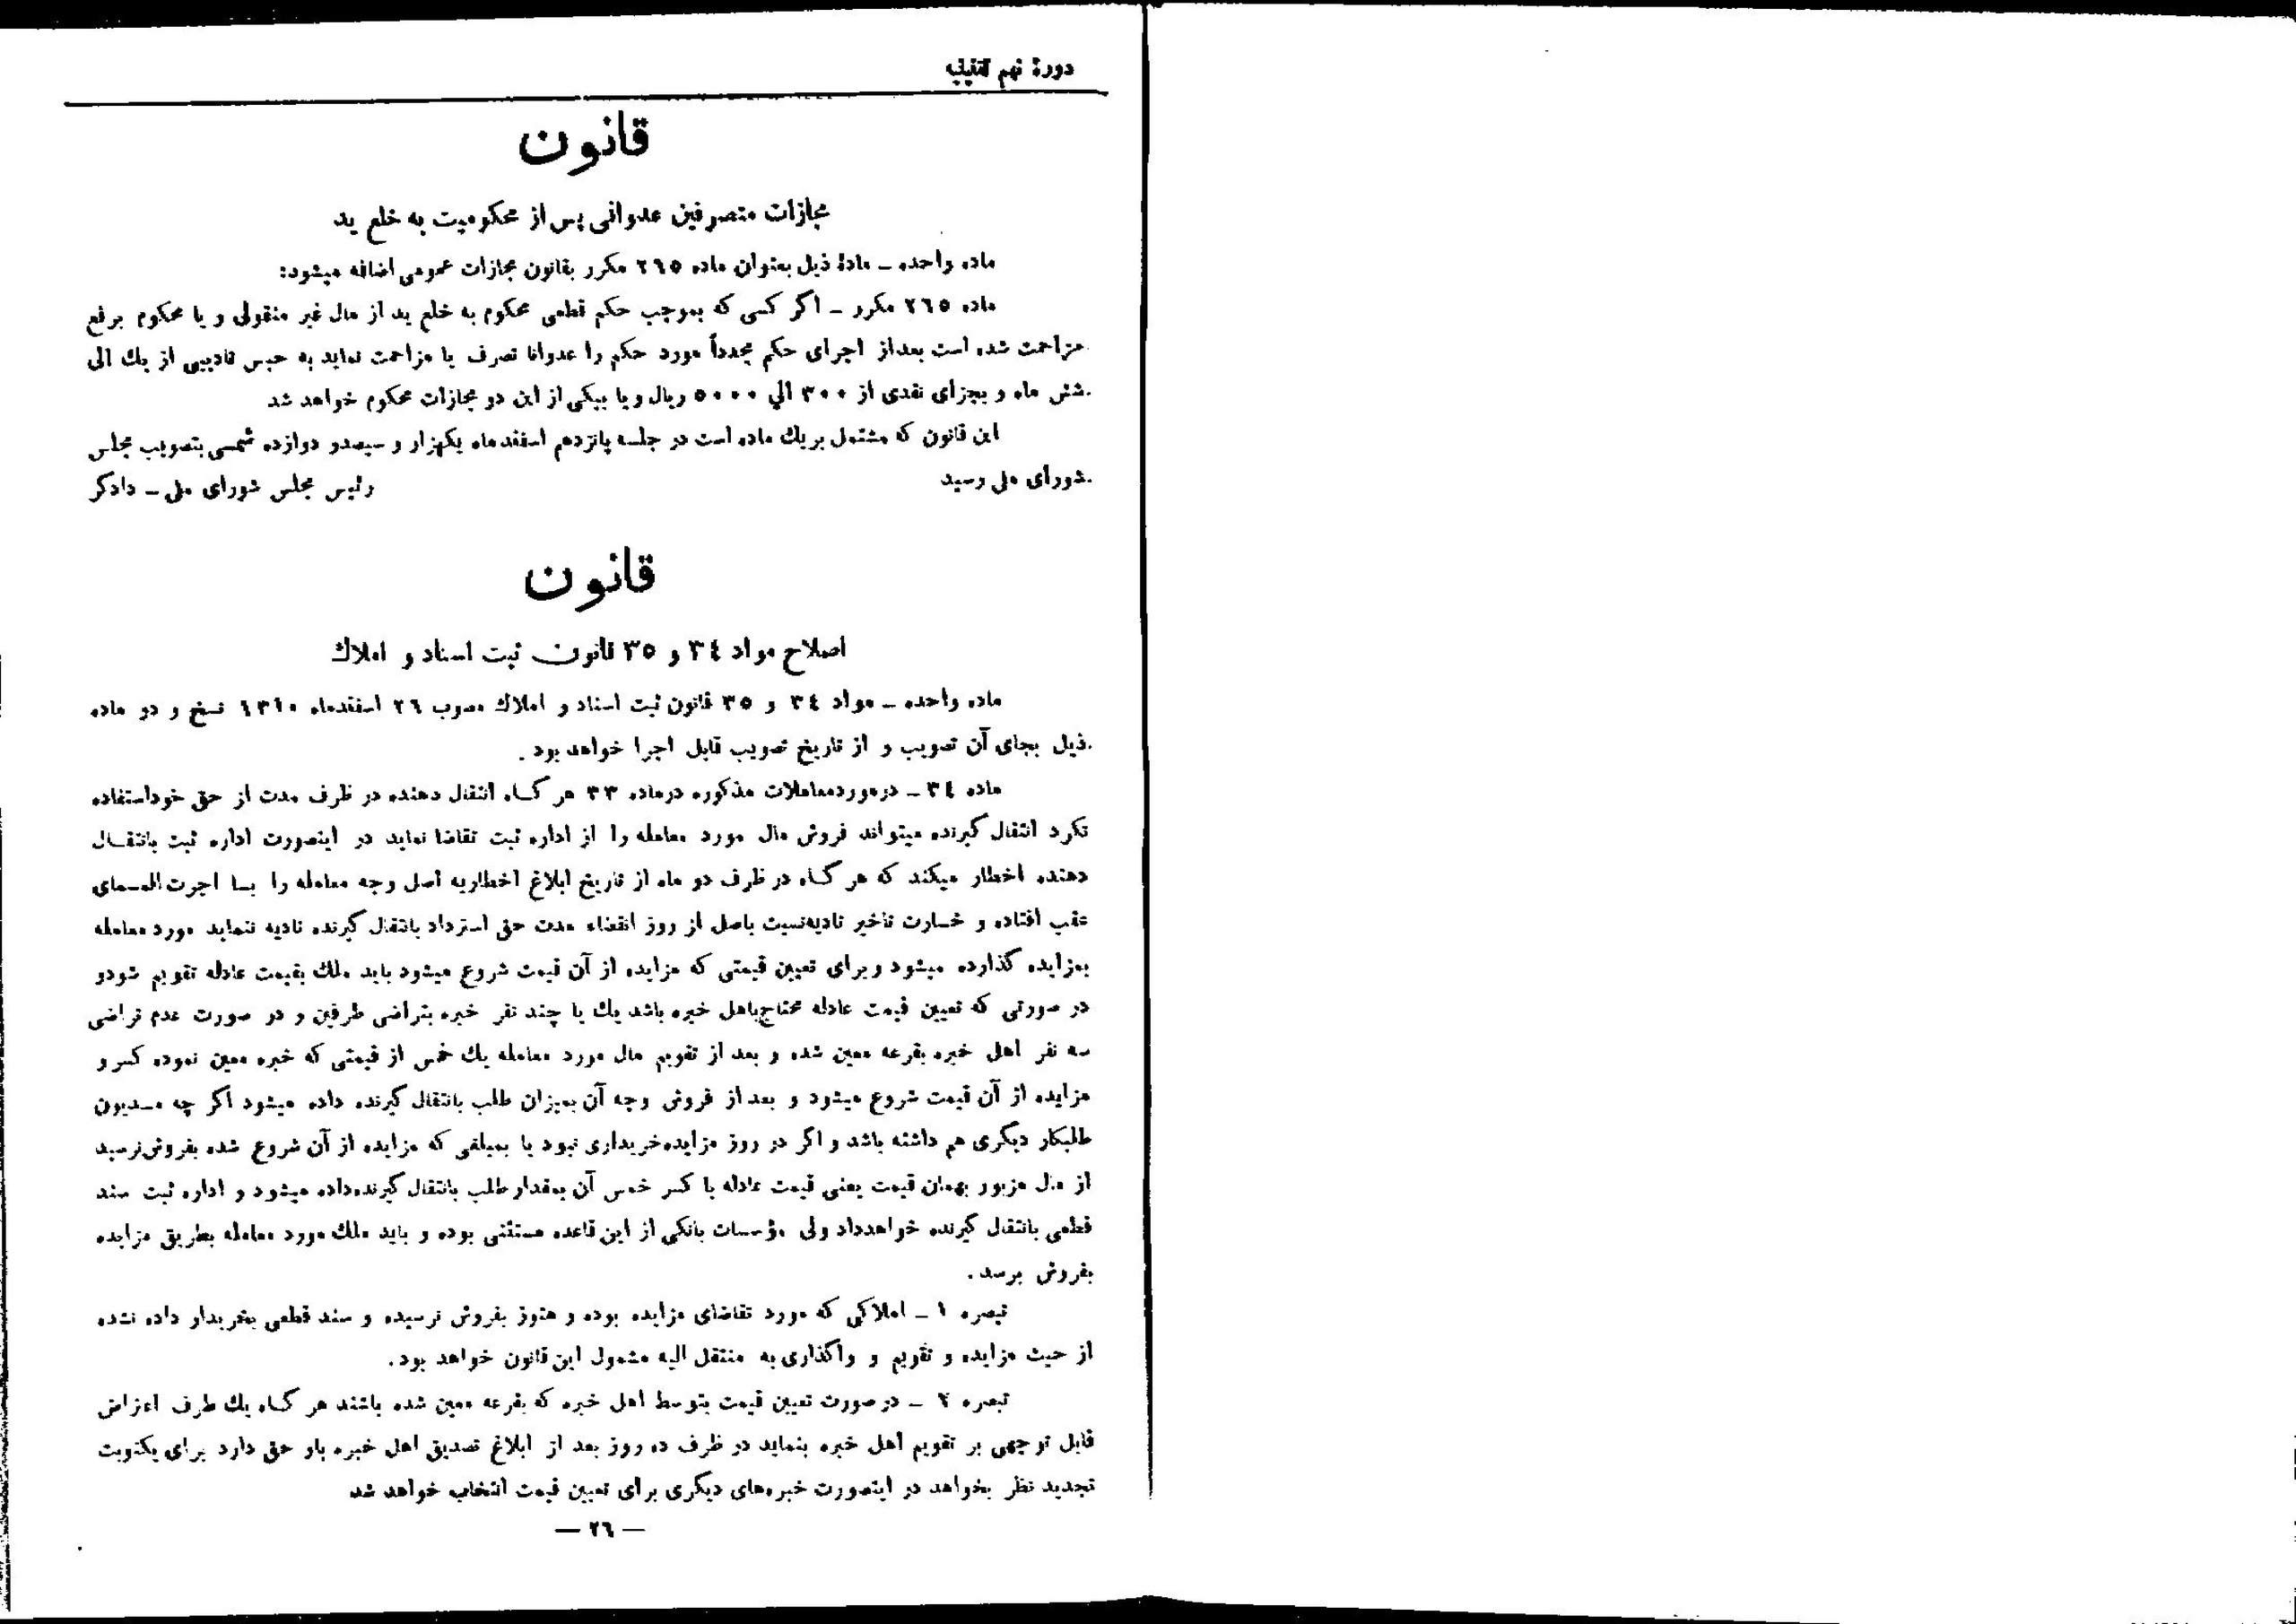 دورهٔ نهم تقنینیه
قانون
مجازات متصرفین عدوانی پس از محکومیت به خلع ید
ماده واحده ـ مادهٔ ذیل بعنوان ماده ۲٦٥ مکرر بقانون مجازات عمومی اضافه میشود:
ماده ۲٦٥ مکرر ـ اگر کسی که بموجب حکم قطعی محکوم به خلع ید از مال غیر منقولی و یا محکوم برفع
مزاحمت شده است بعداز اجرای حکم مجدداً مورد حکم را عدوانا تصرف یا مزاحمت نماید به حبس تادیبی از یك الی
شش ماه و بجزای نقدی از ۳۰۰ الي ۵۰۰۰ ریال و یا بیکی از این دو مجازات محکوم خواهد شد
این قانون که مشتمل بریك ماده است در جلسه پانزدهم اسفندماه یکهزار و سیصدو دوازده شمسی بتصویب مجلس
شورای ملی رسید رئیس مجلس شورای ملی ـ دادگر
قانون
اصلاح مواد ۳٤ و ۳٥ قانون ثبت اسناد و املاك
ماده واحده ـ مواد ۳٤ و ۳٥ قانون ثبت اسناد و املاك مصوب ۲٦ اسفندماه ۱۳۱۰ نسخ و دو ماده
ذیل بجای آن تصویب و از تاریخ تصویب قابل اجرا خواهد بود .
ماده ۳٤ ـ درموردمعاملات مذکوره درماده ۳۳ هر گـاه انتقال دهنده در ظرف مدت از حق خوداستفاده
نکرد انتقال گیرنده میتواند فروش مال مورد معامله را از اداره ثبت تقاضا نماید در اینصورت اداره ثبت بانتقـال
دهنده اخطار میکند که هر گـاه در ظرف دو ماه از تاریخ ابلاغ اخطاریه اصل وجه معامله را بـا اجرت‌المسمای
عقب افتاده و خسارت تاخیر تادیه‌نسبت باصل از روز انقضاء مدت حق استرداد بانتقال گیرنده تادیه ننماید مورد معامله
بمزایده گذارده میشود و برای تعیین قیمتی که مزایده از آن قیمت شروع میشود باید ملك بقیمت عادله تقویم شودو
در صورتی که تعیین قیمت عادله محتاج‌باهل خبره باشد یك یا چند نفر خبره بتراضی طرفین و در صورت عدم تراضی
سه نفر اهل خبره بقرعه معین شده و بعد از تقویم مال مورد معامله یك خمس از قیمتی که خبره معین نموده کسر و
مزایده از آن قیمت شروع میشود و بعد از فروش وجه آن بمیزان طلب بانتقال گیرنده داده میشود اگر چه مـدیون
طلبکار دیگری هم داشته باشد و اگر در روز مزایده‌خریداری نبود یا بمبلغی که مزایده از آن شروع شده بفروش‌نرسید
از مال مزبور بهمان قیمت یعنی قیمت عادله با کسر خمس آن بمقدار طلب بانتقال گیرنده‌داده میشود و اداره ثبت سند
قطعی بانتقال گیرنده خواهدداد ولی مؤسسات بانکی از این قاعده مستثنی بوده و باید ملك مورد معامله بطریق مزایده
بفروش برسد .
تبصره ۱ ـ املاکی که مورد تقاضای مزایده بوده و هنوز بفروش نرسیده و سند قطعی بخریدار داده نشده
از حیث مزایده و تقویم و واگذاری به منتقل الیه مشمول این قانون خواهد بود.
تبصره ۲ ـ درصورت تعیین قیمت بتوسط اهل خبره که بقرعه معین شده باشند هر گـاه یك طرف اعتراض
قابل توجهی بر تقویم اهل خبره بنماید در ظرف ده روز بعد از ابلاغ تصدیق اهل خبره باو حق دارد برای یکنوبت
تجدید نظر بخواهد در اینصورت خبره‌های دیگری برای تعیین قیمت انتخاب خواهد شد
— ۲٦ —